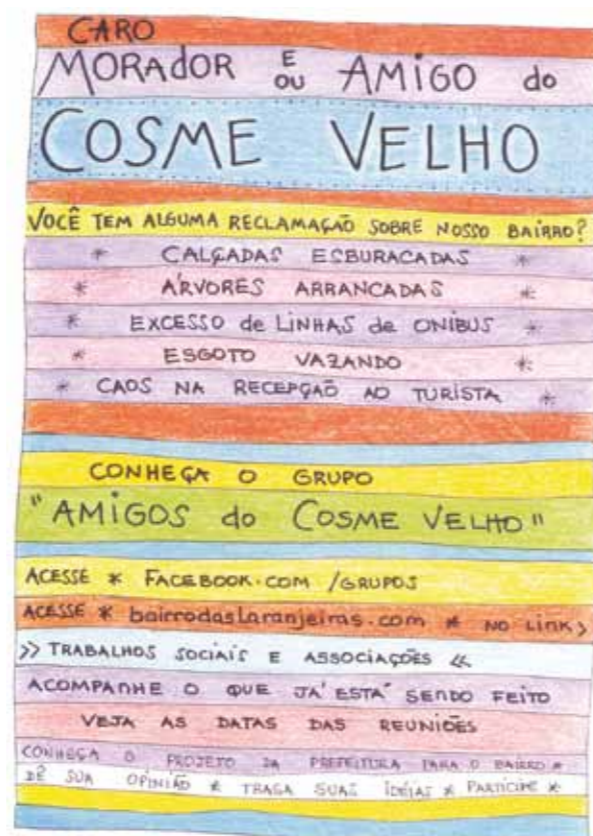 CARO
MORADOR E OU AMIGO do
COSME VELHO
VOCÊ TEM ALGUMA RECLAMAÇÃO SOBRE NOSSO BAIRRO?
* CALÇADAS ESBURACADAS *
* ÁRVORES ARRANCADAS *
* EXCESSO de LINHAS de ONIBUS *
* ESGOTO VAZANDO *
* CAOS NA RECEPÇÃO AO TURISTA *
CONHEÇA O GRUPO
"AMIGOS do COSME VELHO"
ACESSE * FACEBOOK.COM /GRUPOS
ACESSE * bairrodaslaranjeiras.com * NO LINK >
>> TRABALHOS SOCIAIS E ASSOCIAÇÕES <<
ACOMPANHE O QUE JÁ ESTÁ SENDO FEITO
VEJA AS DATAS DAS REUNIÕES
CONHEÇA O PROJETO DA PREFEITURA PARA O BAIRRO *
DÊ SUA OPINIÃO * TRAGA SUAS IDÉIAS * PARTICIPE *